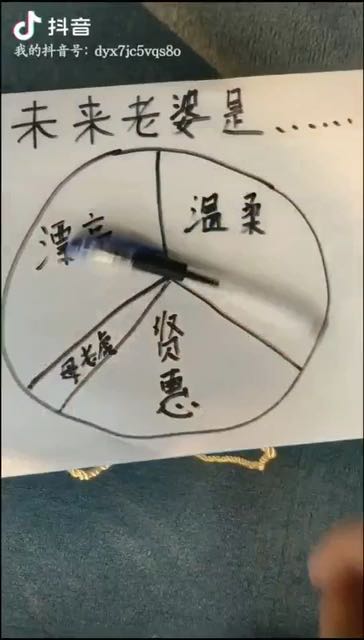 抖音
我的抖音号：dyx7jc5vqs8o
未来老婆是......
漂亮
温柔
母老虎
贤惠